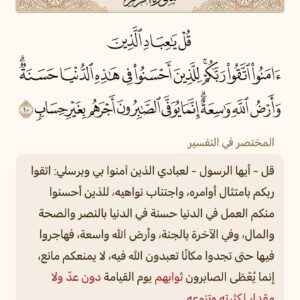 قُلْ يَٰعِبَادِ ٱلَّذِينَ
ءَامَنُوا۟ ٱتَّقُوا۟ رَبَّكُمْ ۚ لِلَّذِينَ أَحْسَنُوا۟ فِى هَٰذِهِ ٱلدُّنْيَا حَسَنَةٌ ۗ
وَأَرْضُ ٱللَّهِ وَٰسِعَةٌ ۗ إِنَّمَا يُوَفَّى ٱلصَّٰبِرُونَ أَجْرَهُم بِغَيْرِ حِسَابٍ ١٠
المختصر في التفسير
قل - أيها الرسول - لعبادي الذين آمنوا بي وبرسلي: اتقوا
ربكم بامتثال أوامره، واجتناب نواهيه، للذين أحسنوا
منكم العمل في الدنيا حسنة في الدنيا بالنصر والصحة
والمال، وفي الآخرة بالجنة، وأرض الله واسعة، فهاجروا
فيها حتى تجدوا مكانًا تعبدون الله فيه، لا يمنعكم مانع،
إنما يُعْطَى الصابرون ثوابهم يوم القيامة دون عدّ ولا
مقدار لكثرته وتنوعه